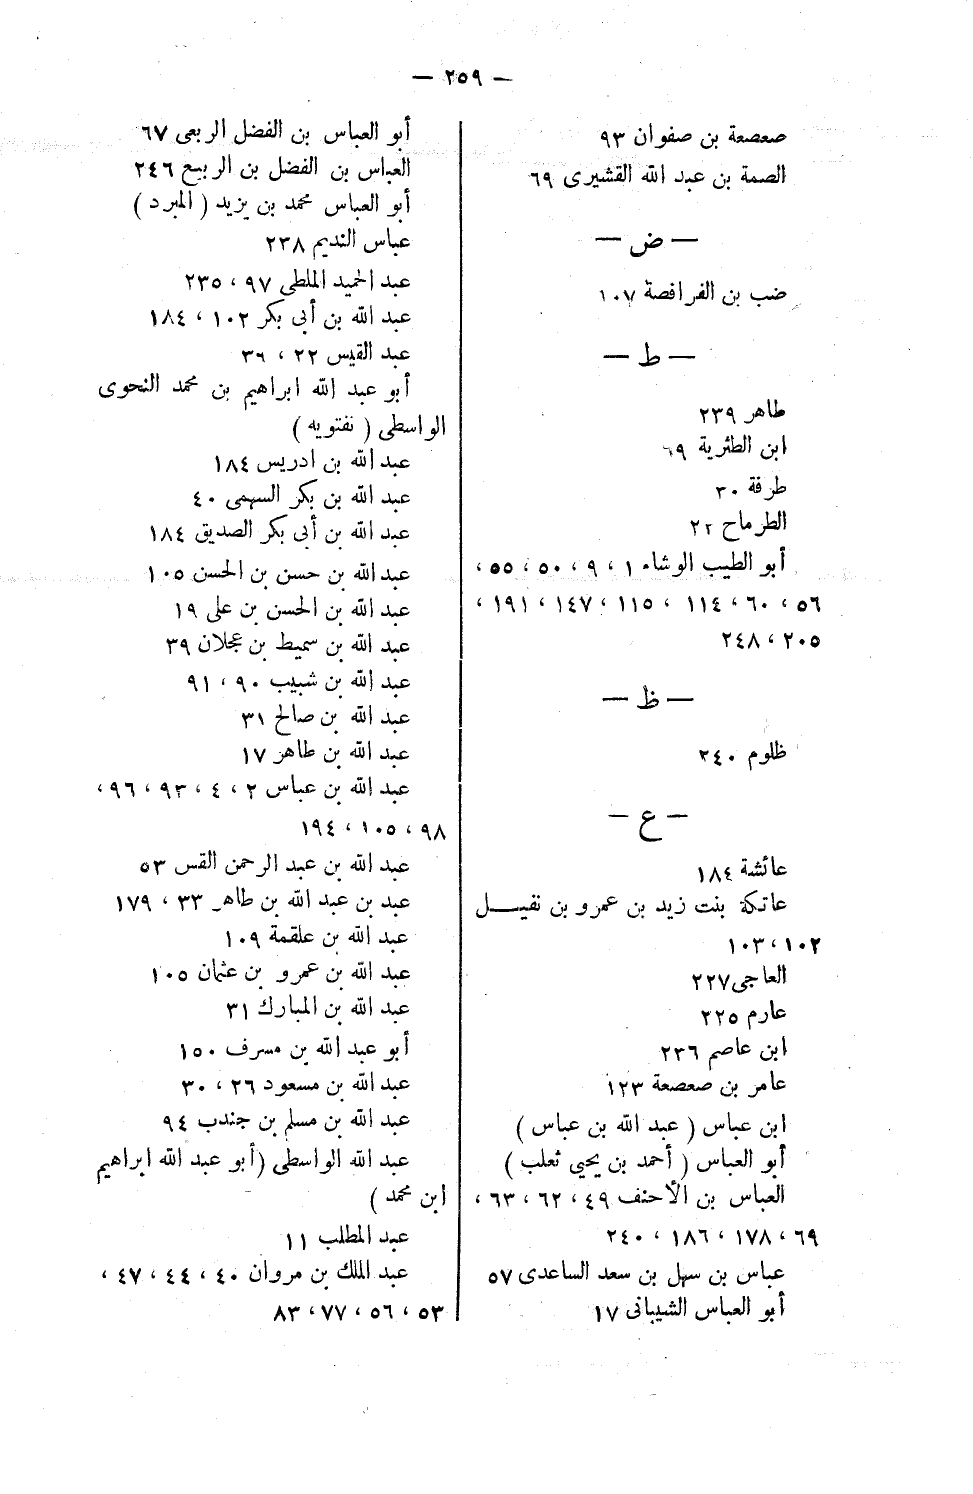 — ٢٥٩ —
صعصعة بن صفوان ٩٣
الصمة بن عبد الله القشيرى ٦٩
— ض —
ضب بن الفرافصة ١٠٧
— ط —
طاهر ٢٣٩
ابن الطثرية ٦٩
طرفة ٣٠
الطرماح ٢٢
أبو الطيب الوشاء ١ ، ٩ ، ٥٠ ، ٥٥ ،
٥٦ ، ٦٠ ، ١١٤ ، ١١٥ ، ١٤٧ ، ١٩١ ،
٢٠٥ ، ٢٤٨
— ظ —
ظلوم ٢٤٠
— ع —
عائشة ١٨٤
عاتكة بنت زيد بن عمرو بن نفيل
١٠٢ ، ١٠٣
العاجى ٢٢٧
عارم ٢٢٥
ابن عاصم ٢٣٦
عامر بن صعصعة ١٢٣
ابن عباس ( عبد الله بن عباس )
أبو العباس ( أحمد بن يحيى ثعلب )
العباس بن الأحنف ٤٩ ، ٦٢ ، ٦٣ ،
٦٩ ، ١٧٨ ، ١٨٦ ، ٢٤٠
عباس بن سهل بن سعد الساعدى ٥٧
أبو العباس الشيبانى ١٧
أبو العباس بن الفضل الربعى ٦٧
العباس بن الفضل بن الربيع ٢٤٦
أبو العباس محمد بن يزيد ( المبرد )
عباس النديم ٢٣٨
عبد الحميد الملطى ٩٧ ، ٢٣٥
عبد الله بن أبى بكر ١٠٢ ، ١٨٤
عبد القيس ٢٢ ، ٣٦
أبو عبد الله ابراهيم بن محمد النحوى
الواسطى ( نفتويه )
عبد الله بن ادريس ١٨٤
عبد الله بن بكر السهمى ٤٠
عبد الله بن أبى بكر الصديق ١٨٤
عبد الله بن حسن بن الحسن ١٠٥
عبد الله بن الحسن بن على ١٩
عبد الله بن سميط بن عجلان ٣٩
عبد الله بن شبيب ٩٠ ، ٩١
عبد الله بن صالح ٣١
عبد الله بن طاهر ١٧
عبد الله بن عباس ٢ ، ٤ ، ٩٣ ، ٩٦ ،
٩٨ ، ١٠٥ ، ١٩٤
عبد الله بن عبد الرحمن القس ٥٣
عبد بن عبد الله بن طاهر ٣٣ ، ١٧٩
عبد الله بن علقمة ١٠٩
عبد الله بن عمرو بن عثمان ١٠٥
عبد الله بن المبارك ٣١
أبو عبد الله بن مسرف ١٥٠
عبد الله بن مسعود ٢٦ ، ٣٠
عبد الله بن مسلم بن جندب ٩٤
عبد الله الواسطى ( أبو عبد الله ابراهيم
ابن محمد )
عبد المطلب ١١
عبد الملك بن مروان ٤٠ ، ٤٤ ، ٤٧ ،
٥٣ ، ٥٦ ، ٧٧ ، ٨٣